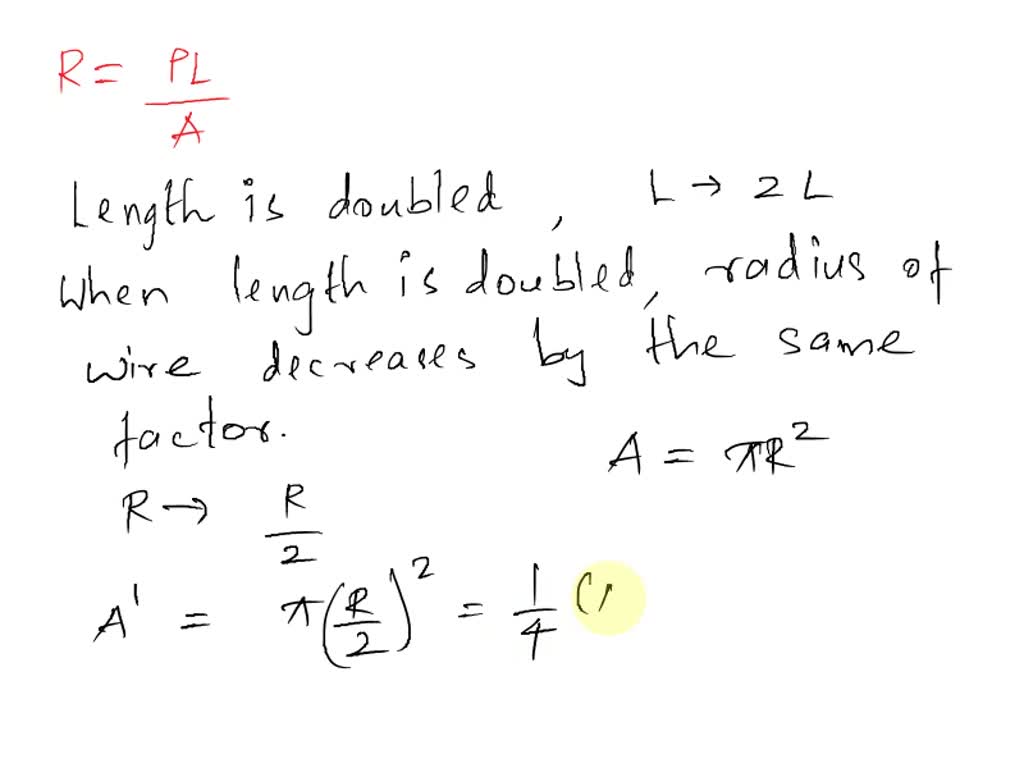 R = PL / A
Length is doubled, L → 2L
When length is doubled, radius of
wire decreases by the same
factor.
A = πR²
R → R / 2
A' = π(R/2)² = 1/4 (